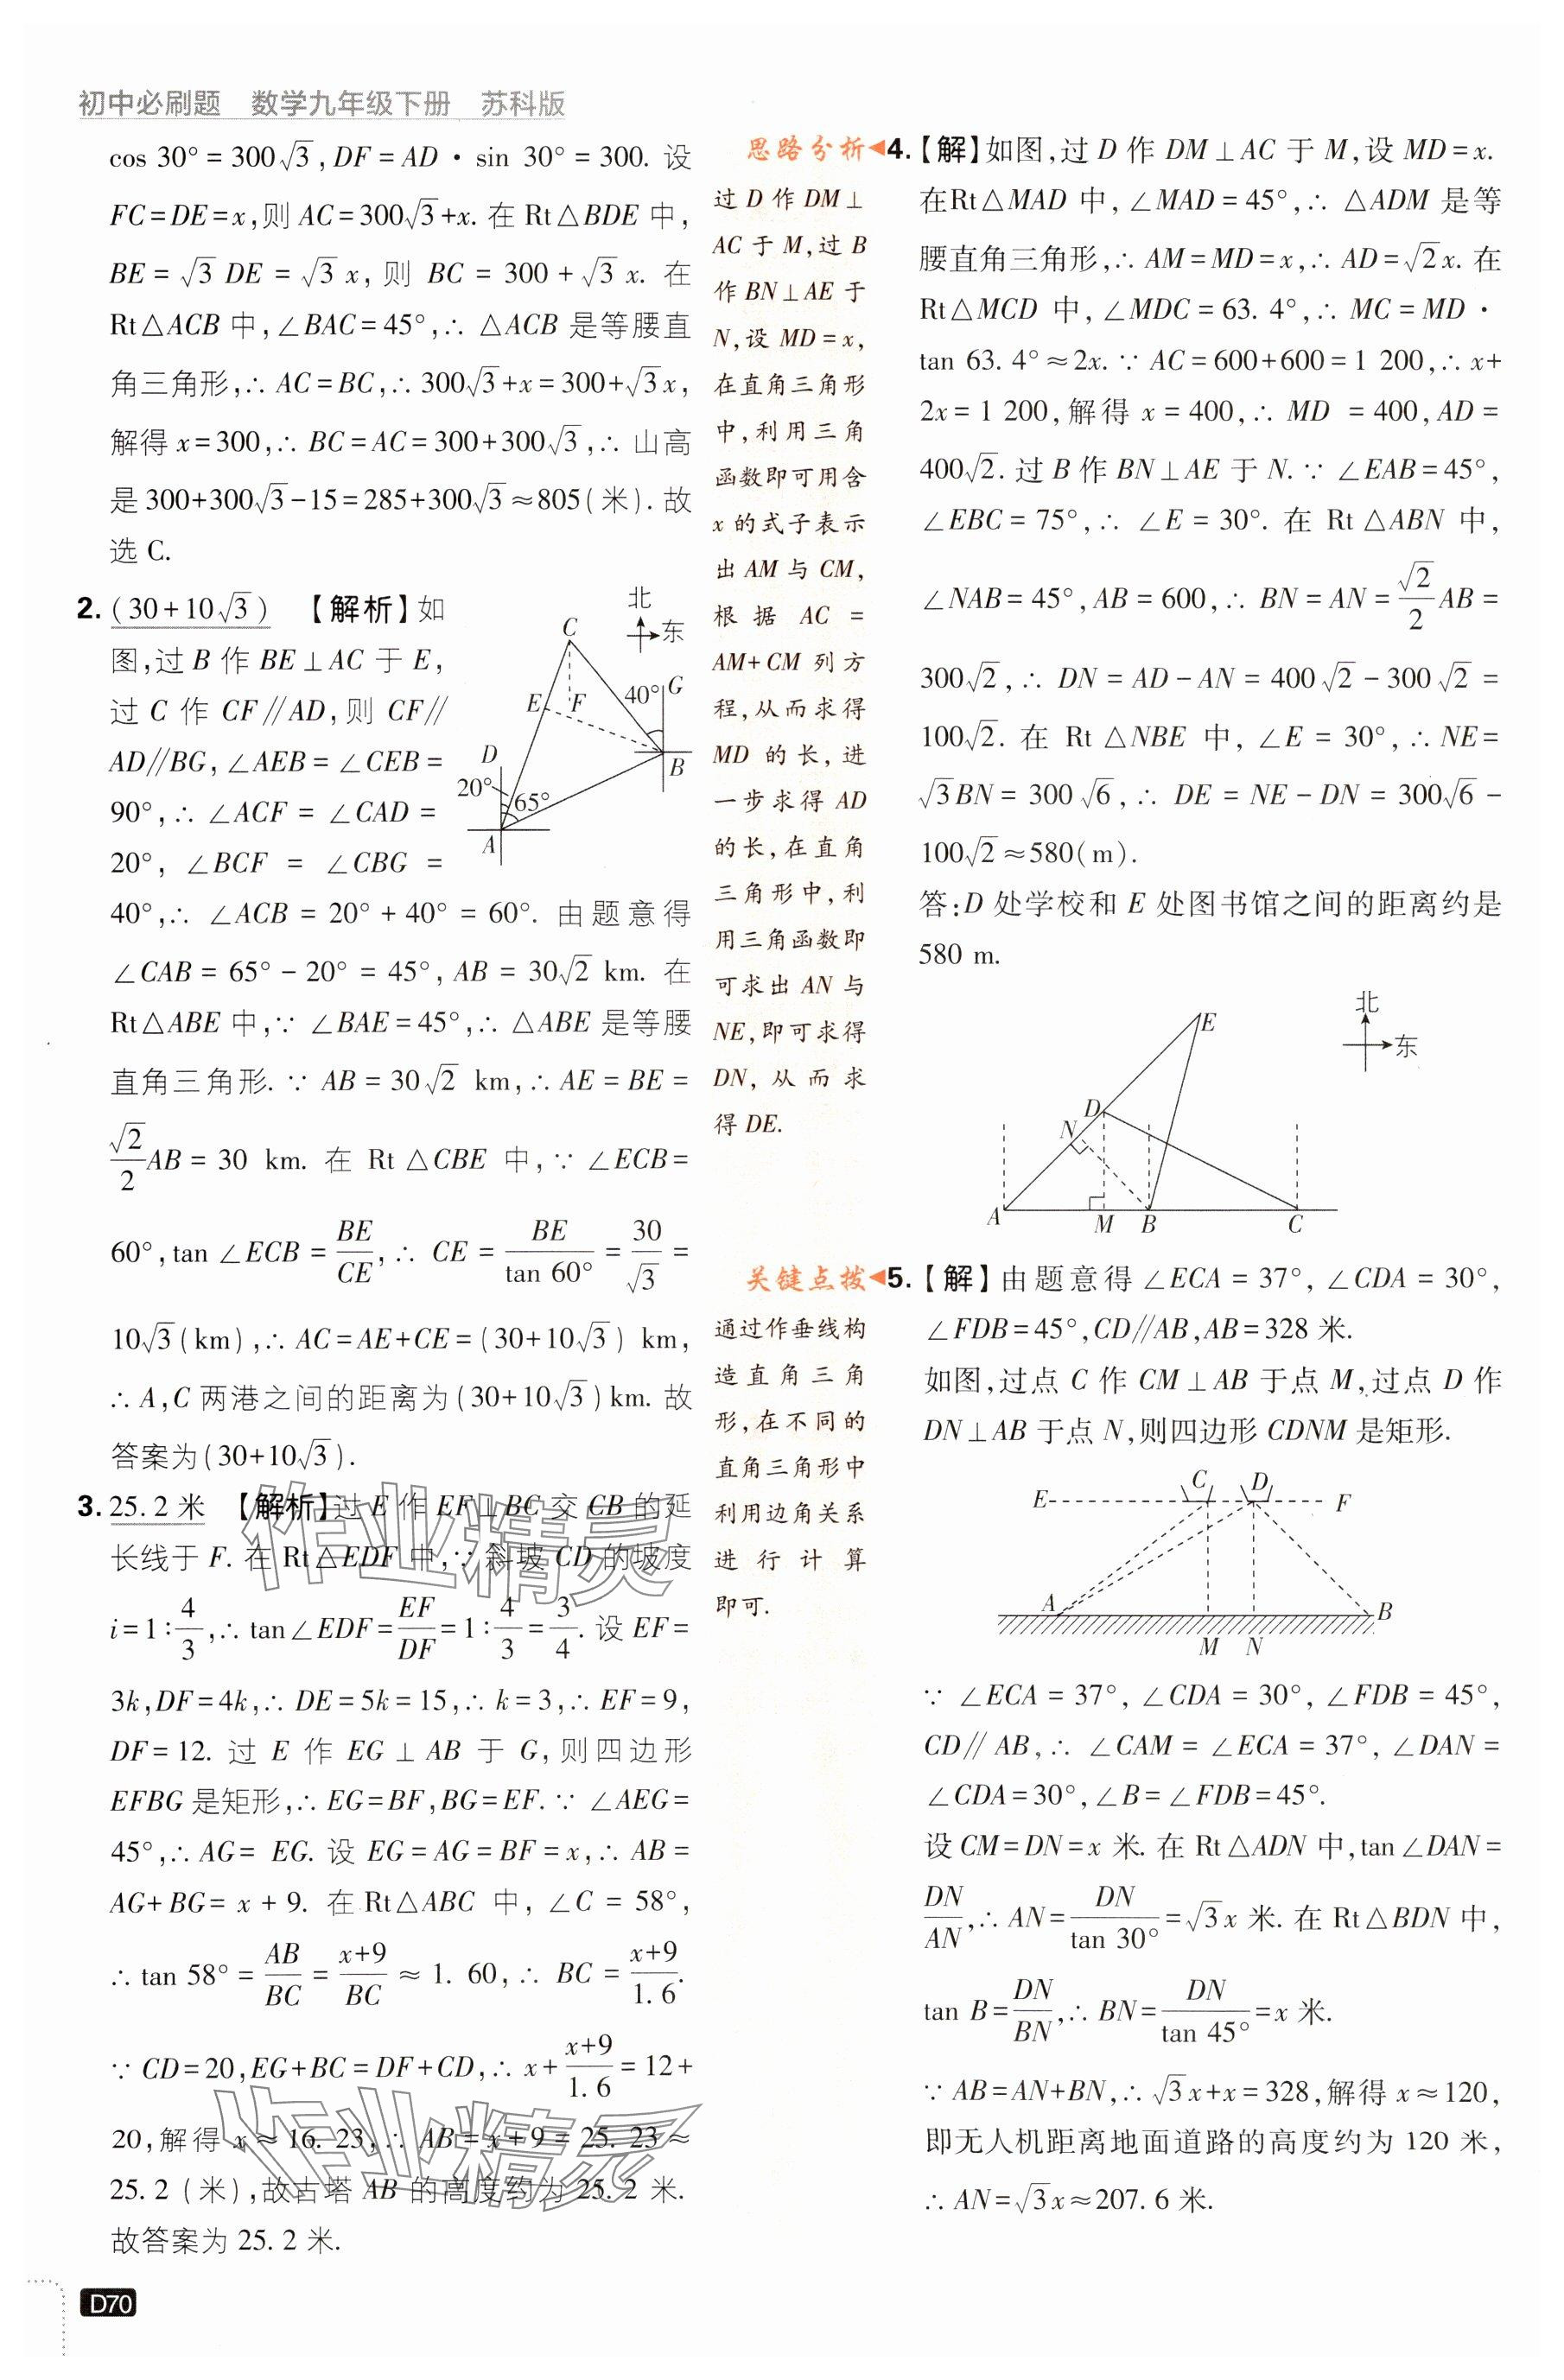 初中必刷题 数学九年级下册 苏科版
cos 30°=300√3,DF=AD·sin 30°=300. 设
FC=DE=x,则 AC=300√3+x. 在 Rt△BDE 中,
BE=√3 DE=√3 x, 则 BC=300+√3 x. 在
Rt△ACB 中,∠BAC=45°,∴ △ACB 是等腰直
角三角形,∴ AC=BC,∴ 300√3+x=300+√3x,
解得 x=300,∴ BC=AC=300+300√3,∴ 山高
是 300+300√3-15=285+300√3≈805(米). 故
选 C.
2. (30+10√3) 【解析】如
图,过 B 作 BE⊥AC 于 E,
过 C 作 CF∥AD,则 CF∥
AD∥BG,∠AEB=∠CEB=
90°,∴ ∠ACF=∠CAD=
20°, ∠BCF = ∠CBG =
40°,∴ ∠ACB=20°+40°=60°. 由题意得
∠CAB=65°-20°=45°,AB=30√2 km. 在
Rt△ABE 中,∵ ∠BAE=45°,∴ △ABE 是等腰
直角三角形. ∵ AB=30√2 km,∴ AE=BE=
√2/2 AB=30 km. 在 Rt△CBE 中,∵ ∠ECB=
60°,tan∠ECB=BE/CE,∴ CE=BE/tan 60°=30/√3=
10√3(km),∴ AC=AE+CE=(30+10√3) km,
∴ A,C 两港之间的距离为(30+10√3)km. 故
答案为(30+10√3).
北
东
C
E
F
40°
G
D
B
20°
65°
A
3. 25.2 米 【解析】过 E 作 EF⊥BC 交 CB 的延
长线于 F. 在 Rt△EDF 中,∵ 斜坡 CD 的坡度
i=1∶4/3,∴ tan∠EDF=EF/DF=1∶4/3=3/4. 设 EF=
3k,DF=4k,∴ DE=5k=15,∴ k=3,∴ EF=9,
DF=12. 过 E 作 EG⊥AB 于 G,则四边形
EFBG 是矩形,∴ EG=BF,BG=EF. ∵ ∠AEG=
45°,∴ AG= EG. 设 EG=AG=BF=x,∴ AB=
AG+BG=x+9. 在 Rt△ABC 中,∠C=58°,
∴ tan 58°=AB/BC=(x+9)/BC≈1.60,∴ BC=(x+9)/1.6.
∵ CD=20,EG+BC=DF+CD,∴ x+(x+9)/1.6=12+
20,解得 x≈16.23,∴ AB=x+9=25.23≈
25.2(米),故古塔 AB 的高度约为 25.2 米.
故答案为 25.2 米.
作业精灵
作业精灵
D70
思路分析
过 D 作 DM⊥
AC 于 M,过 B
作 BN⊥AE 于
N,设 MD=x,
在直角三角形
中,利用三角
函数即可用含
x 的式子表示
出 AM 与 CM,
根据 AC=
AM+CM 列方
程,从而求得
MD 的长,进
一步求得 AD
的长,在直角
三角形中,利
用三角函数即
可求出 AN 与
NE,即可求得
DN,从而求
得 DE.
4. 【解】如图,过 D 作 DM⊥AC 于 M,设 MD=x.
在Rt△MAD 中,∠MAD=45°,∴ △ADM 是等
腰直角三角形,∴ AM=MD=x,∴ AD=√2x. 在
Rt△MCD 中,∠MDC=63.4°,∴ MC=MD·
tan 63.4°≈2x. ∵ AC=600+600=1 200,∴ x+
2x=1 200,解得 x=400,∴ MD =400,AD=
400√2. 过 B 作 BN⊥AE 于 N. ∵ ∠EAB=45°,
∠EBC=75°,∴ ∠E=30°. 在 Rt△ABN 中,
∠NAB=45°,AB=600,∴ BN=AN=√2/2 AB=
300√2,∴ DN=AD-AN=400√2-300√2=
100√2. 在 Rt△NBE 中,∠E=30°,∴ NE=
√3BN=300√6,∴ DE=NE-DN=300√6-
100√2≈580(m).
答:D 处学校和 E 处图书馆之间的距离约是
580 m.
北
东
E
D
N
A
M
B
C
关键点拨
通过作垂线构
造直角三角
形,在不同的
直角三角形中
利用边角关系
进行计算
即可.
5. 【解】由题意得∠ECA=37°,∠CDA=30°,
∠FDB=45°,CD∥AB,AB=328 米.
如图,过点 C 作 CM⊥AB 于点 M,过点 D 作
DN⊥AB 于点 N,则四边形 CDNM 是矩形.
E
C
D
F
A
B
M
N
∵ ∠ECA=37°,∠CDA=30°,∠FDB=45°,
CD∥AB,∴ ∠CAM=∠ECA=37°,∠DAN=
∠CDA=30°,∠B=∠FDB=45°.
设 CM=DN=x 米. 在 Rt△ADN 中,tan∠DAN=
DN/AN,∴ AN=DN/tan 30°=√3x 米. 在 Rt△BDN 中,
tan B=DN/BN,∴ BN=DN/tan 45°=x 米.
∵ AB=AN+BN,∴ √3x+x=328,解得 x≈120,
即无人机距离地面道路的高度约为 120 米,
∴ AN=√3x≈207.6 米.